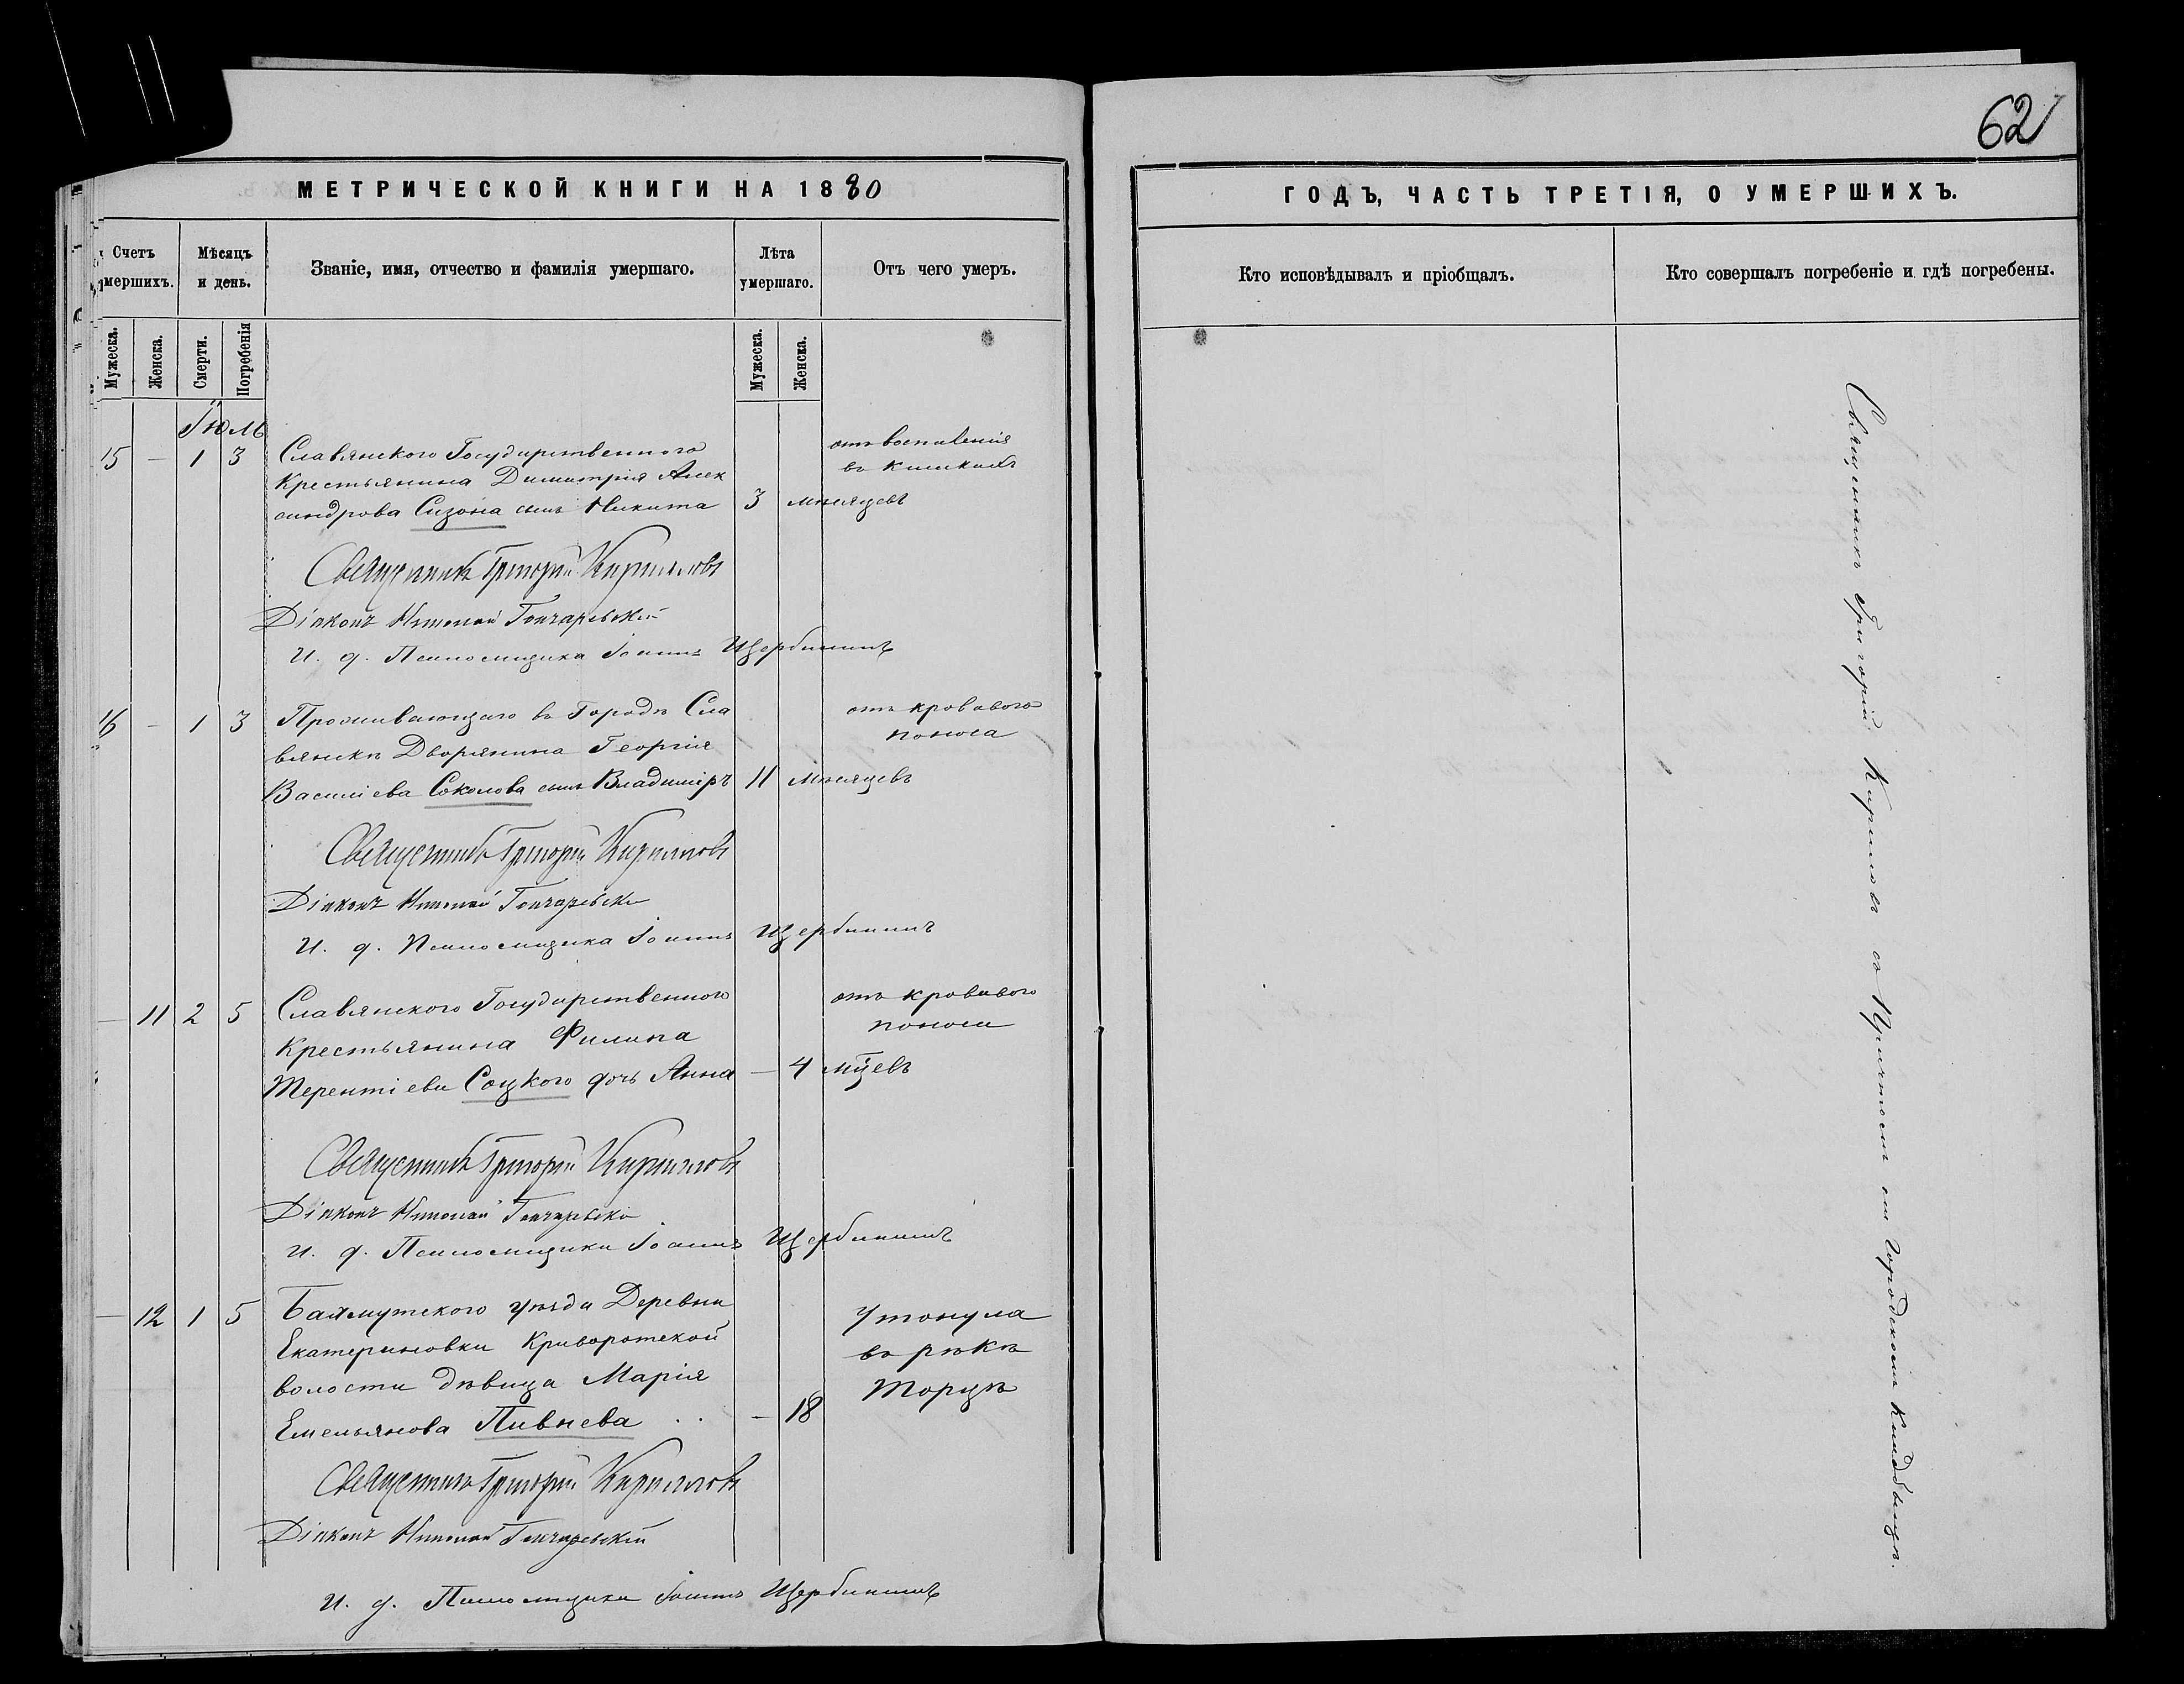 62
МЕТРИЧЕСКОЙ КНИГИ НА 1880
Счетъ умершихъ.
Мѣсяцъ и день.
Званіе, имя, отчество и фамилія умершаго.
Лѣта умершаго.
Отъ чего умеръ.
Мужеска.
Женска.
Смерти.
Погребенія
Мужеска.
Женска.
Іюль
15 — 1 3 Славянского Государственного отъ воспаленія
Крестьянина Димитрія Алек въ кишкахъ
сандрова Сизона сынъ Никита 3 мѣсяцевъ
Священникъ Григорій Кирилловъ
Діаконъ Николай Гончаревскій
И. д. Псаломщика Іоаннъ Щербининъ
16 — 1 3 Проживающаго въ Городѣ Сла отъ кроваваго
вянскѣ Дворянина Георгія поноса
Василіева Соколова сынъ Владиміръ 11 мѣсяцевъ
Священникъ Григорій Кирилловъ
Діаконъ Николай Гончаревскій
И. д. Псаломщика Іоаннъ Щербининъ
— 11 2 5 Славянского Государственного отъ кроваваго
Крестьянина Филипа поноса
Терентіева Соцкого дочь Анна — 4 мцевъ
Священникъ Григорій Кирилловъ
Діаконъ Николай Гончаревскій
И. д. Псаломщика Іоаннъ Щербининъ
— 12 1 5 Бахмутского уѣзда Деревни Утонула
Екатериновки Криворотской въ рѣкѣ
волости дѣвица Марія Торцѣ
Емельянова Пивнева — 18
Священникъ Григорій Кирилловъ
Діаконъ Николай Гончаревскій
И. д. Псаломщика Іоаннъ Щербининъ
ГОДЪ, ЧАСТЬ ТРЕТІЯ, О УМЕРШИХЪ.
Кто исповѣдывалъ и пріобщалъ.
Кто совершалъ погребеніе и гдѣ погребены.
Священникъ Григорій Кириловъ съ Причтомъ на городскомъ кладбищѣ.